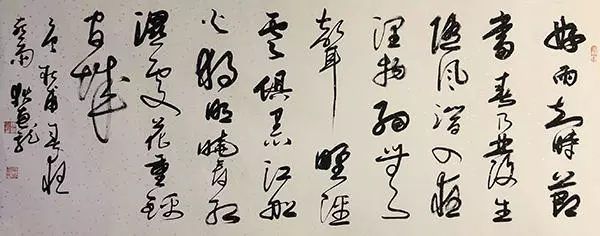 好雨知時節
當春乃發生
随風潛入夜
潤物細無
聲野徑
雲俱黑江船
火獨明曉看紅
濕處花重錦
官城
唐杜甫春夜
喜雨